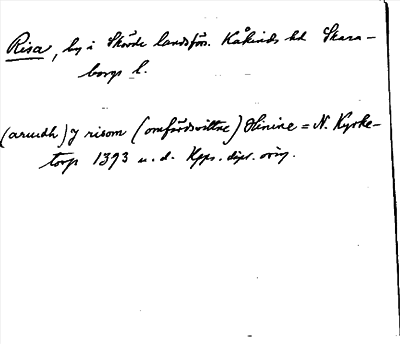 Risa, by i Skövde landsförs. Kåkinds hd Skara-
borgs l.
(arendh) J risom (omfärdsvittne) Hinine = N. Kyrke-
torp 1393 u. d. Upps. dipl. orig.